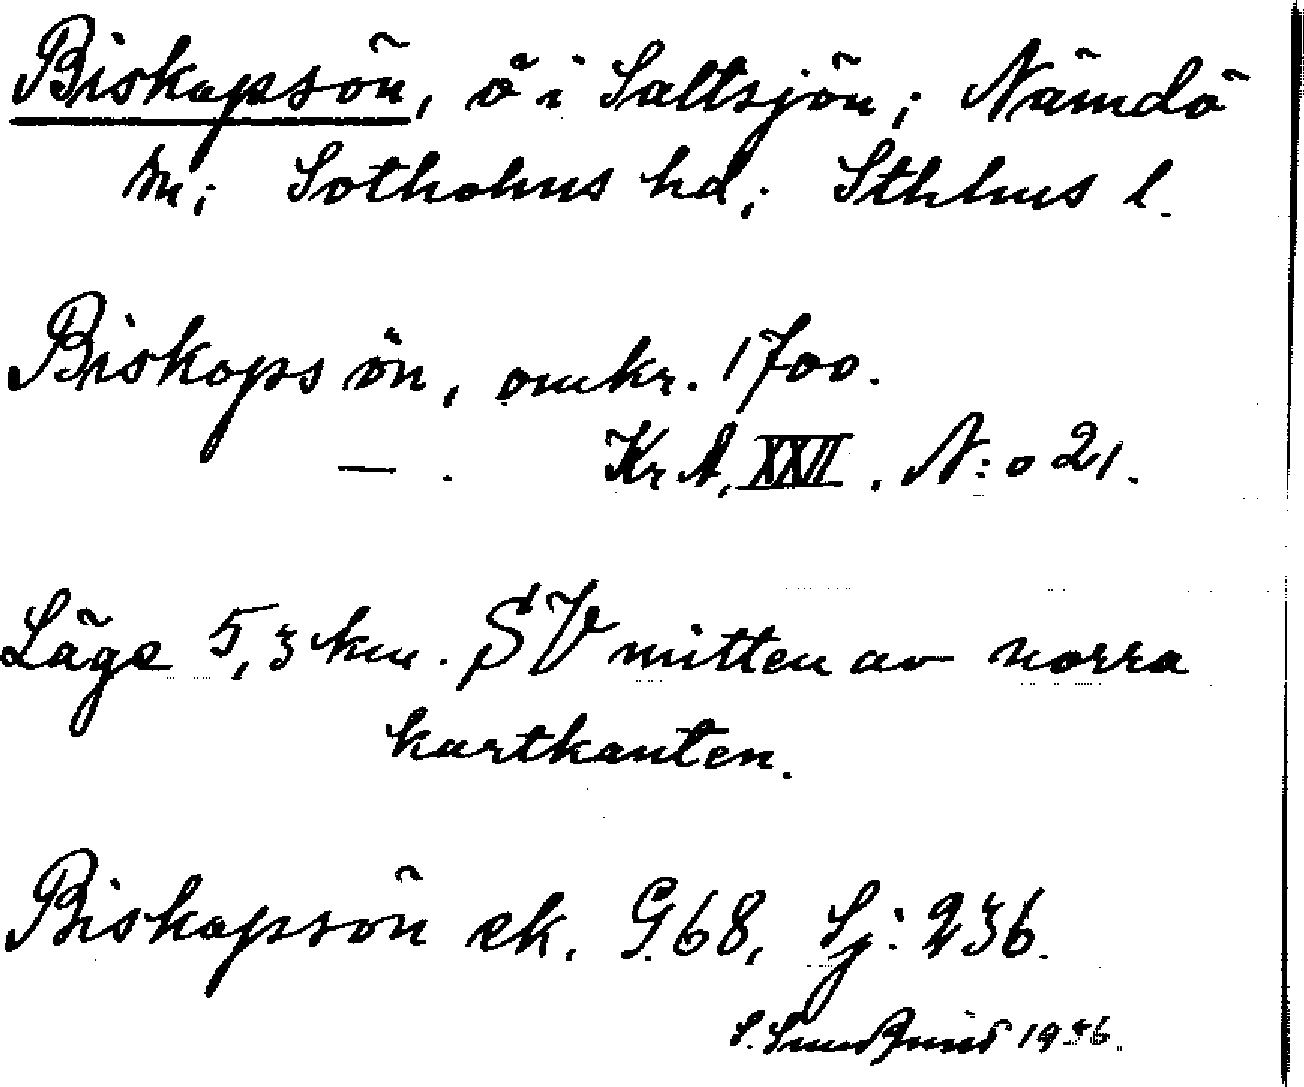 Biskopsön, ö i Saltsjön; Nämdö
sn; Sotholms hd; Sthlms l.
Biskops ön, omkr. 1700.
— . KrA, XXII. N:o 21.
Läge 5,3 km. SV mitten av norra
kartkanten.
Biskopsön ek. G.68, Sj: 236.
1936.